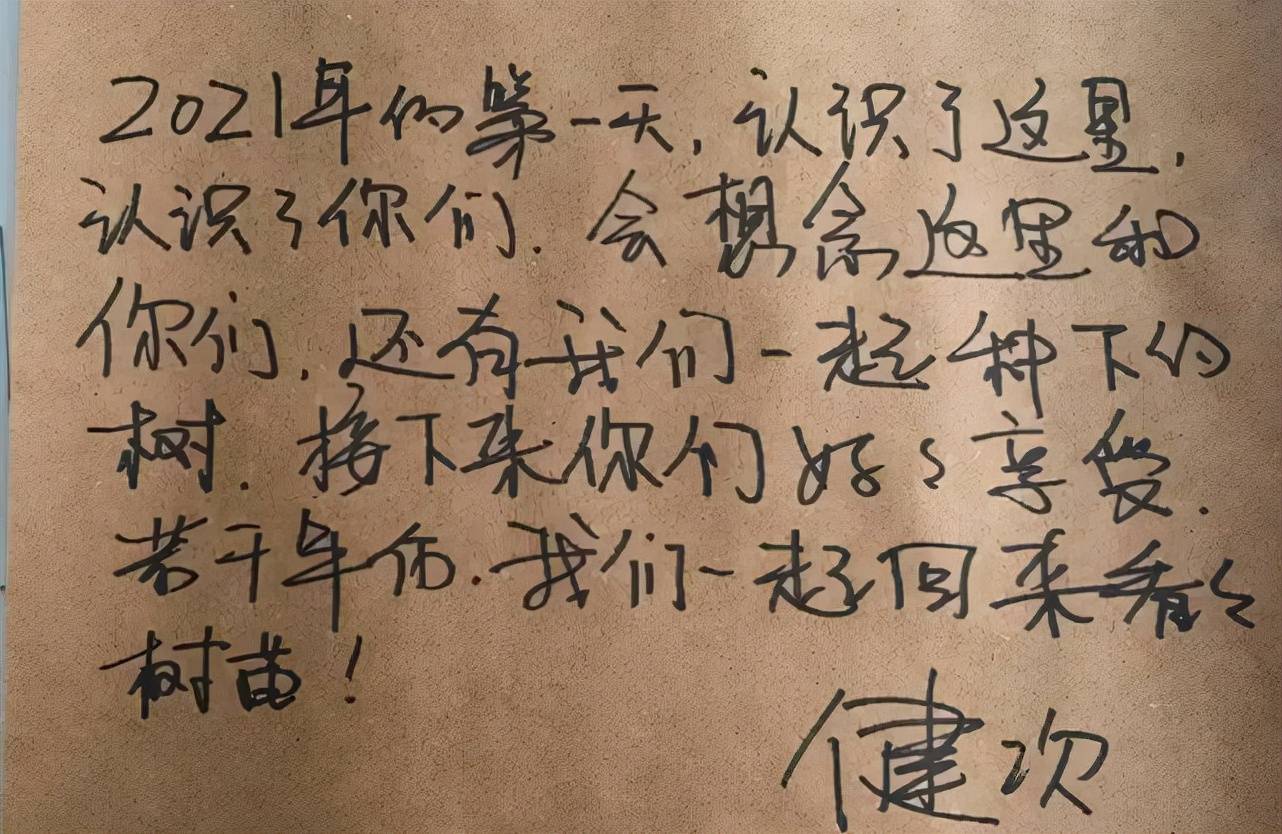 2021年的第一天，认识了这里，
认识了你们．会想念这里和
你们．还有我们一起种下的
树．接下来你们好好享受．
若干年后．我们一起回来看看
树苗！
健次